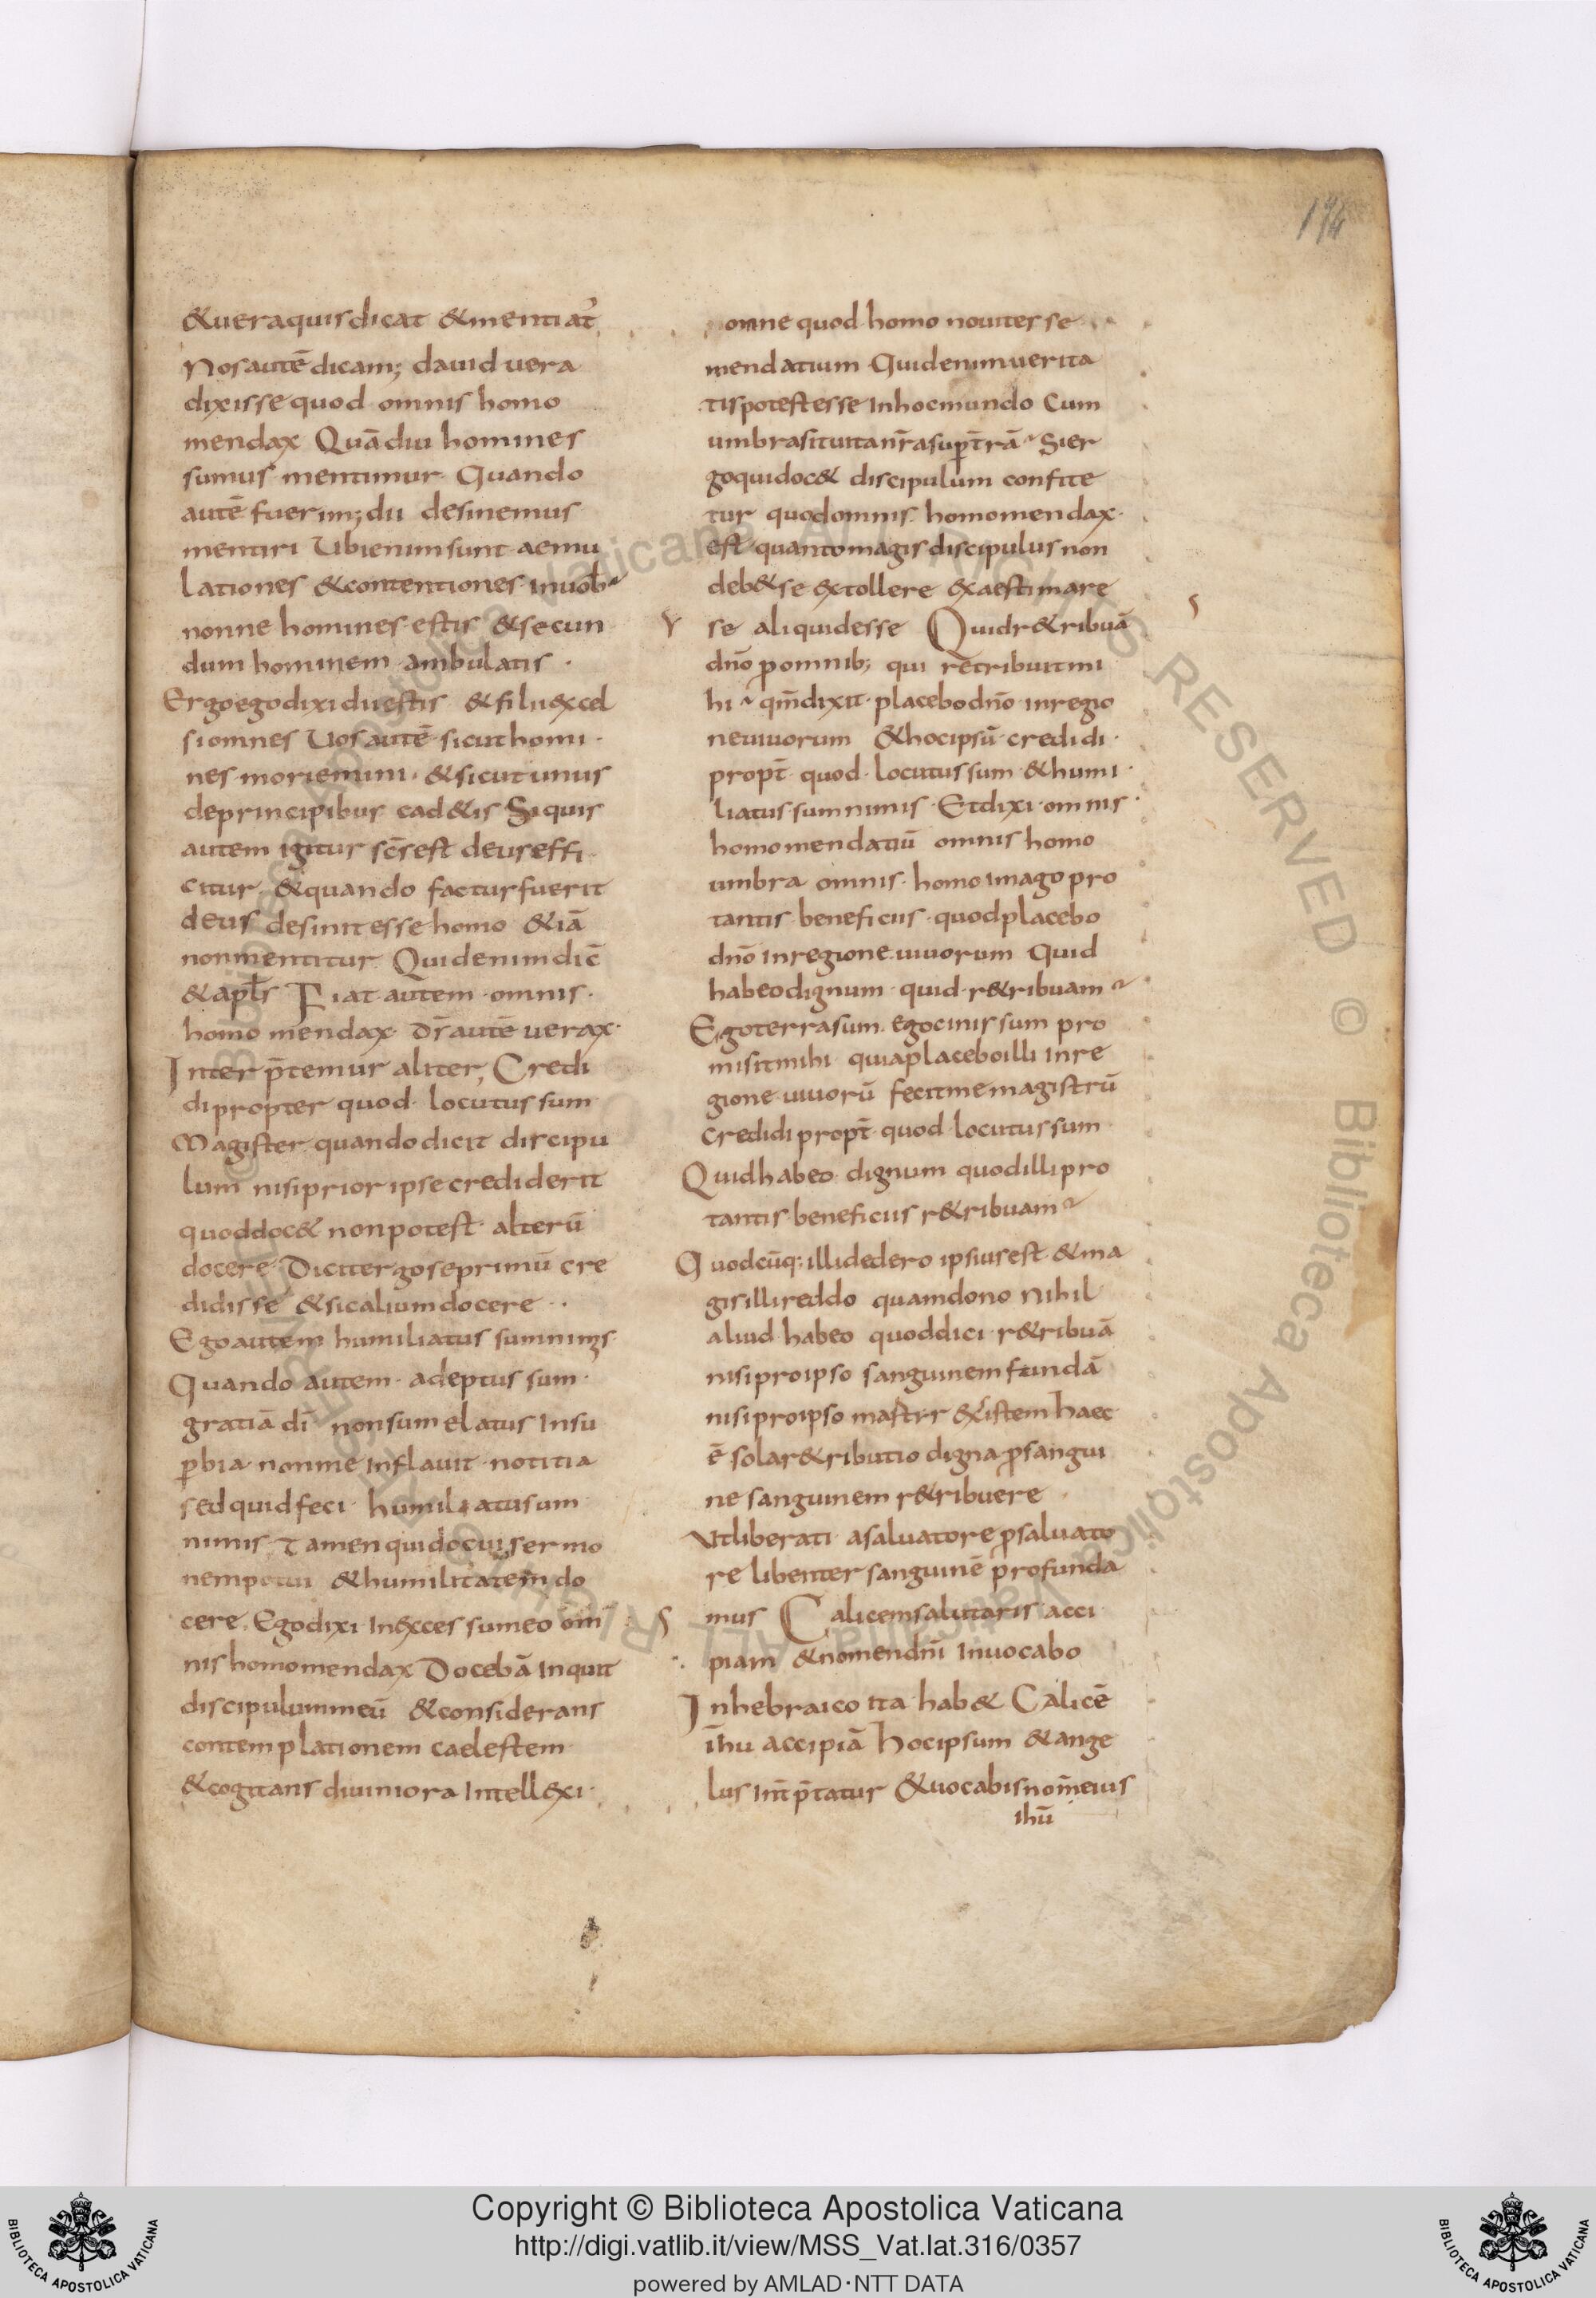 194
&uera quis dicat &mentiat᷑
Nos autē dicam; dauid uera
dixisse quod omnis homo
mendax Quādiu homines
sumus mentimur Quando
autē fuerim; dii desinemus
mentiri Ubi enim sunt aemu
lationes &contentiones in uob̄
nonne homines estis &secun
dum hominem ambulatis ·
Ergo ego dixi dii estis &filii excel
si omnes Uos autē sicut homi·
nes moriemini &sicut unus
de principibus cad&is Siquis
autem igitur sc̄s est deus effi
citur &quando factus fuerit
deus desinit esse homo &iā
non mentitur Quid enim dic̄
&apl̄s Fiat autem omnis·
homo mendax d̄s autē uerax·
Interp̄temur aliter, Credi
di propter quod locutus sum
Magister quando dicit discipu
lum nisi prior ipse crediderit
quod doc& non potest alterū
docere Dicit ergo se primū cre
didisse &sic alium docere ··
Ego autem humiliatus sum nimis·
Quando autem adeptus sum·
gratiā dī non sum elatus In su
ꝑbia non me inflauit notitia
sed quid feci humiliatus um
nimis Tamen qui docui sermo
nem potui &humilitatem do
cere, Ego dixi In excessu meo om̄
nis homo mendax Docebā inquit
discipulum meū &considerans
contemplationem caelestem
&cogitans diuiniora Intellexi·
omne quod homo nouit esse
mendatium Quid enim uerita
tis potest esse In hoc mundo Cum
umbra sit uita nr̄a sup t̄rā Si er
go qui doc& discipulum confite
tur quod omnis homo mendax·
est quanto magis discipulus non
deb& se extollere exaestimare
se aliquid esse Quid r&ribuā
dn̄o ꝓ omnib; qui retribuit mi
hi qm̄ dixit placebo dn̄o in regio
ne uiuorum &hoc ipsū credidi·
propt̄ quod locutus sum &humi·
liatus sum nimis Et dixi omnis·
homo mendatiū omnis homo
umbra omnis homo imago pro
tantis beneficiis quod placebo
dn̄o in regione uiuorum Quid
habeo dignum quid r&ribuam
Ego terra sum ego cinis sum pro
misit mihi quia placebo illi In re
gione uiuorū fecit me magistrū
Credidi propt̄ quod locutus sum
Quid habeo dignum quod illi pro
tantis beneficiis r&ribuam
Quodcūq; illi dedero ipsius est &ma
gis illi reddo quam dono nihil
aliud habeo quod dici r&ribuā
nisi pro ipso sanguinem fundā
nisi pro ipso martyr existem haec
ē sola r&ributio digna ꝓ sangui
ne sanguinem r&ribuere
Ut liberati a saluatore ꝓ saluato
re libenter sanguinē profunda
mus Calicem salutaris acci
piam &nomen dn̄i Inuocabo
In hebraico ita hab& Calicē
ih̄u accipiā hoc ipsum &ange
lus Int̄p̄tatur &uocabis nom̄ eius
ih̄ū
Copyright © Biblioteca Apostolica Vaticana
http://digi.vatlib.it/view/MSS_Vat.lat.316/0357
powered by AMLAD·NTT DATA
BIBLIOTECA APOSTOLICA VATICANA
BIBLIOTECA APOSTOLICA VATICANA